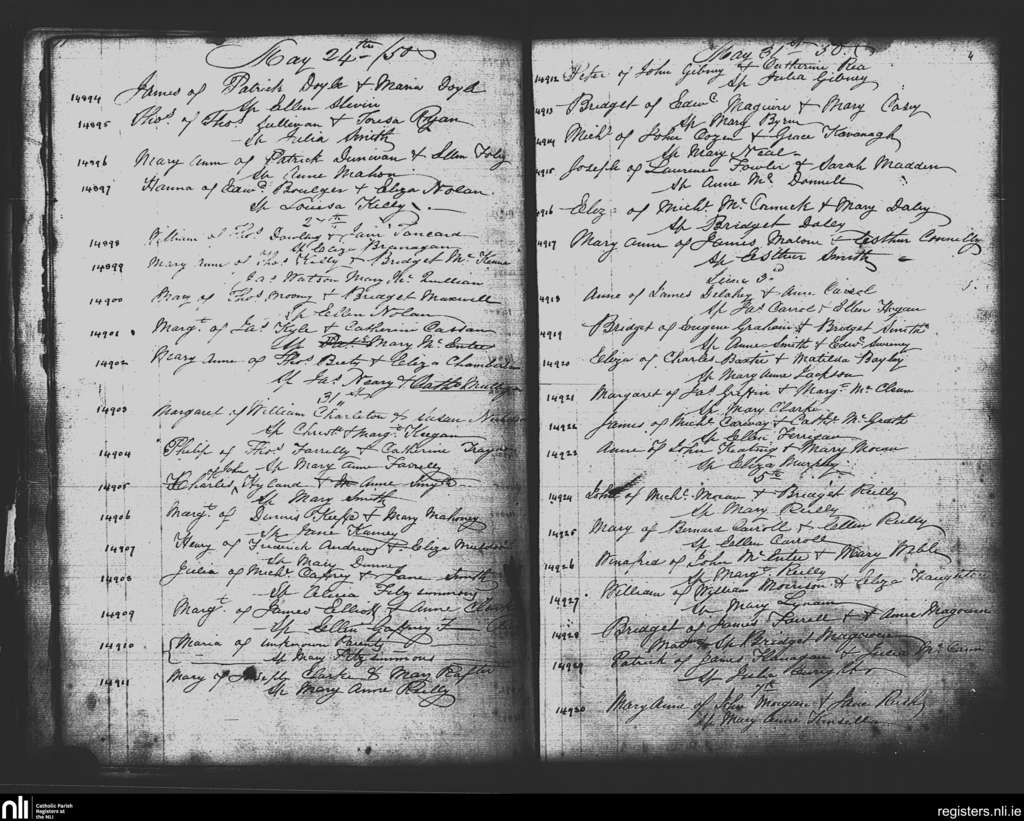 May 24th /50
14894 James of Patrick Doyle & Maria Doyle
Sp Ellen Slevin
14895 Thos. of Thos. Sullivan & Teresa Ryan
Sp Julia Smith
14896 Mary Anne of Patrick Dunivan & Ellen Foley
Sp Anne Mahon
14897 Hanna of Edwd. Boulger & Eliza Nolan
Sp Louisa Kelly
27th
14898 William of Thos Dowling & Jane Tancard
Sp Eliz Branagan
14899 Mary Anne of Thos Reilly & Bridget McKenna
Jas Watson Mary McQuillian
14900 Mary of Thos Mooney & Bridget Maxwell
Sp Ellen Nolan
14901 Margt. of Jas Kyle & Catherine Cassan
Sp Mary McEntee
14902 Mary Anne of Thos Betts & Eliza Chamberlain
Sp Jas Neary & Cathe Mulligan
31st
14903 Margaret of William Charleton & Susan
Sp Christr & Margt. Keegan
14904 Philip of Thos Farrelly & Catherine Traynor
Sp Mary Anne Farrelly
14905 Charles of John Hyland & Anne Smyth
Sp Mary Smith
14906 Margt. of Dennis Keeffe & Mary Mahoney
Sp Jane Kearney
14907 Henry of Frederick Andrews & Eliza Muldoon
Sp Mary Dunne
14908 Julia of Michl. Caffrey & Jane Smith
Sp Alicia Fitzsimmons
14909 Margt. of James Elliott & Anne Clarke
Sp Ellen Caffrey
14910 Maria of unknown Parents
Sp Mary Fitzsimmons
14911 Mary of Joseph Clarke & Mary Rafter
Sp Mary Anne Reilly
May 31st 50
4
14912 Peter of John Gibney & Catherine Rea
Sp Julia Gibney
14913 Bridget of Edwd. Maguire & Mary Casey
Sp Mary Byrne
14914 Michl. of John Cogan & Grace Kavanagh
Sp Mary Neal
14915 Joseph of Laurence Fowler & Sarah Madden
Sp Anne McDonnell
14916 Eliz of Michl McCormick & Mary Daly
Sp Bridget Daley
14917 Mary Anne of James Malone & Esther Connelly
Sp Esther Smith
June 3d
14918 Anne of James Delahey & Anne Carrol
Sp Jas Carrol & Ellen Hogan
14919 Bridget of Eugene Graham & Bridget Smith
Sp Anne Smith & Edwd. Sweeney
14920 Eliza of Charles Baxter & Matilda Bayley
Sp Mary Anne Jackson
14921 Margaret of Jas Griffin & Margt. McClean
Sp Mary Clarke
14922 James of Michl. Conway & Cathe. McGrath
Sp Ellen Ferrigan
14923 Anne of John Keating & Mary Moran
Sp Eliza Murphy
5th
14924 John of Michl. Moran & Bridget Reilly
Sp Mary Reilly
14925 Mary of Bernard Carroll & Ellen Reilly
Sp Ellen Carroll
14926 Winafred of John McEntee & Mary Webb
Sp Margt. Reilly
14927 William of William Morrison & Eliza Haughton
Sp Mary Lynam
14928 Bridget of James Farrell & Anne Magovern
Matw Sp Bridget Magovern
14929 Patrick of James Flanagan & Julia McCann
Sp Julia Enright
7th
14930 Mary Anne of John Morgan & Jane Reilly
Sp Mary Anne Kinsella
nli
Catholic Parish
Registers at
the NLI
registers.nli.ie